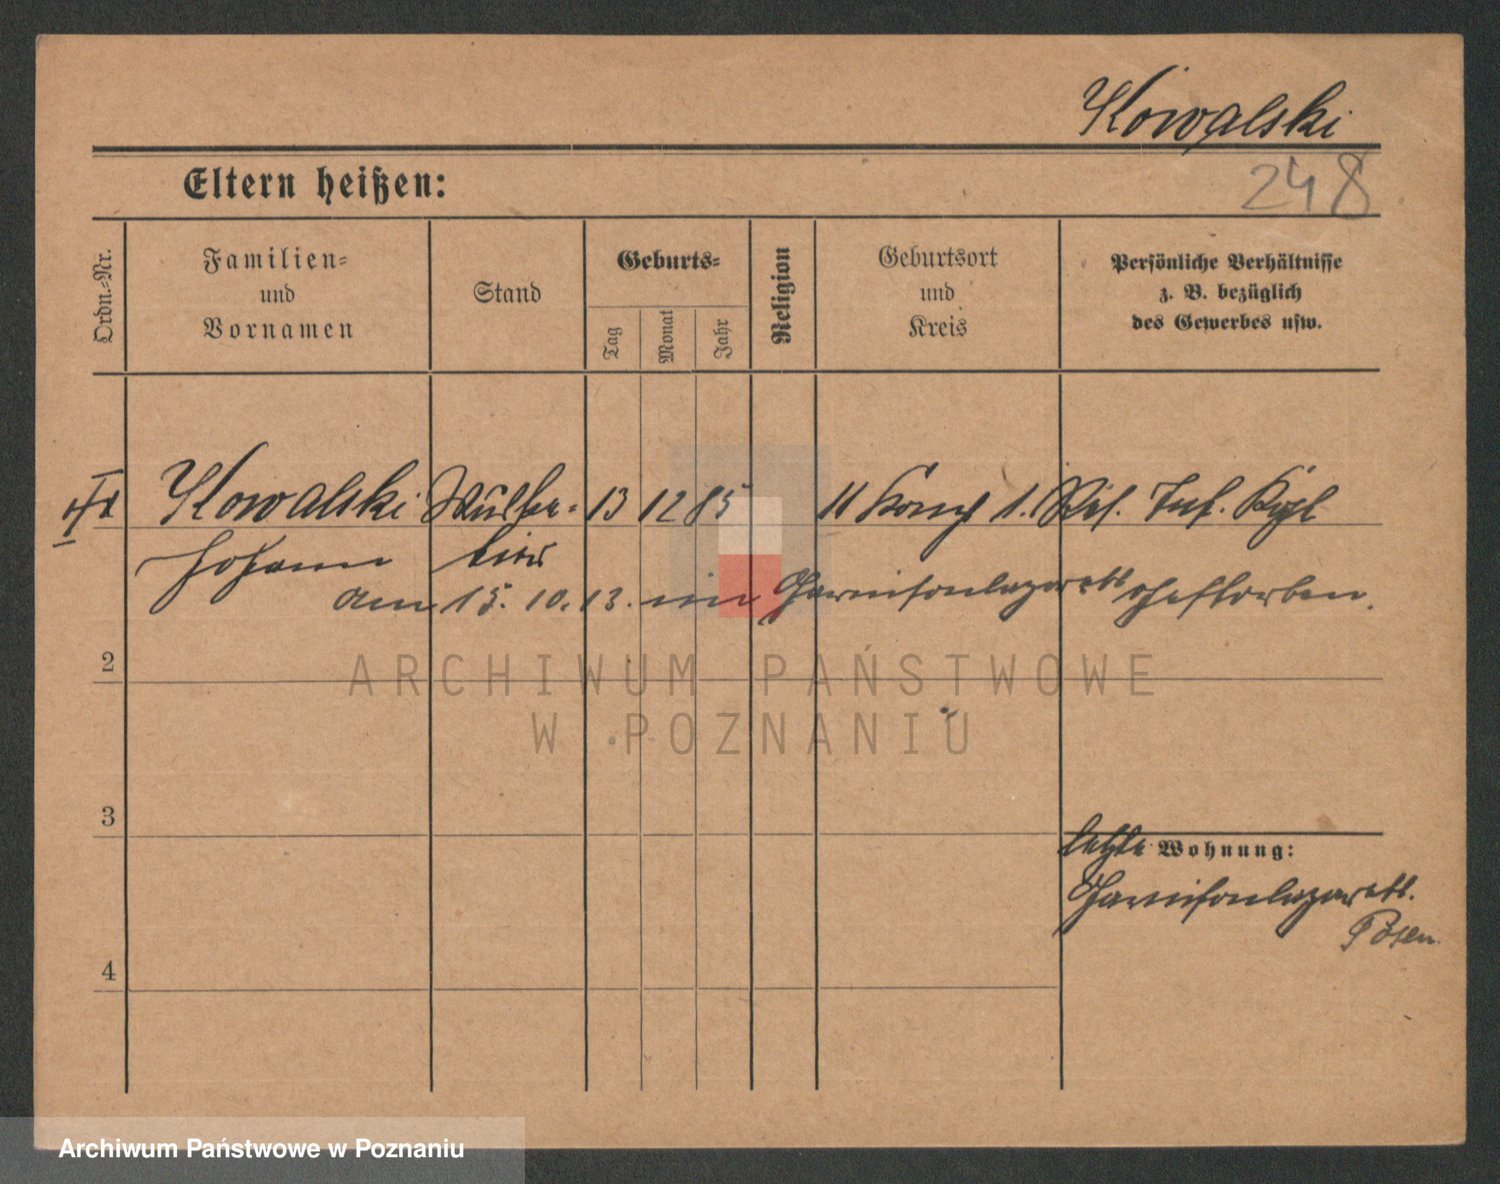 Kowalski
248
Eltern heißen:
Ordn.=Nr.
Familien=
und
Vornamen
Stand
Geburts=
Tag
Monat
Jahr
Religion
Geburtsort
und
Kreis
Persönliche Verhältnisse
z. B. bezüglich
des Gewerbes usw.
Kowalski 13 12 85 11 Komp 1. Inf.
Johann
am 15. 10. 13. im Garnisonlazarett gestorben.
2
ARCHIWUM PAŃSTWOWE
W POZNANIU
3
letzte Wohnung:
Garnisonlazarett.
Posen.
4
Archiwum Państwowe w Poznaniu